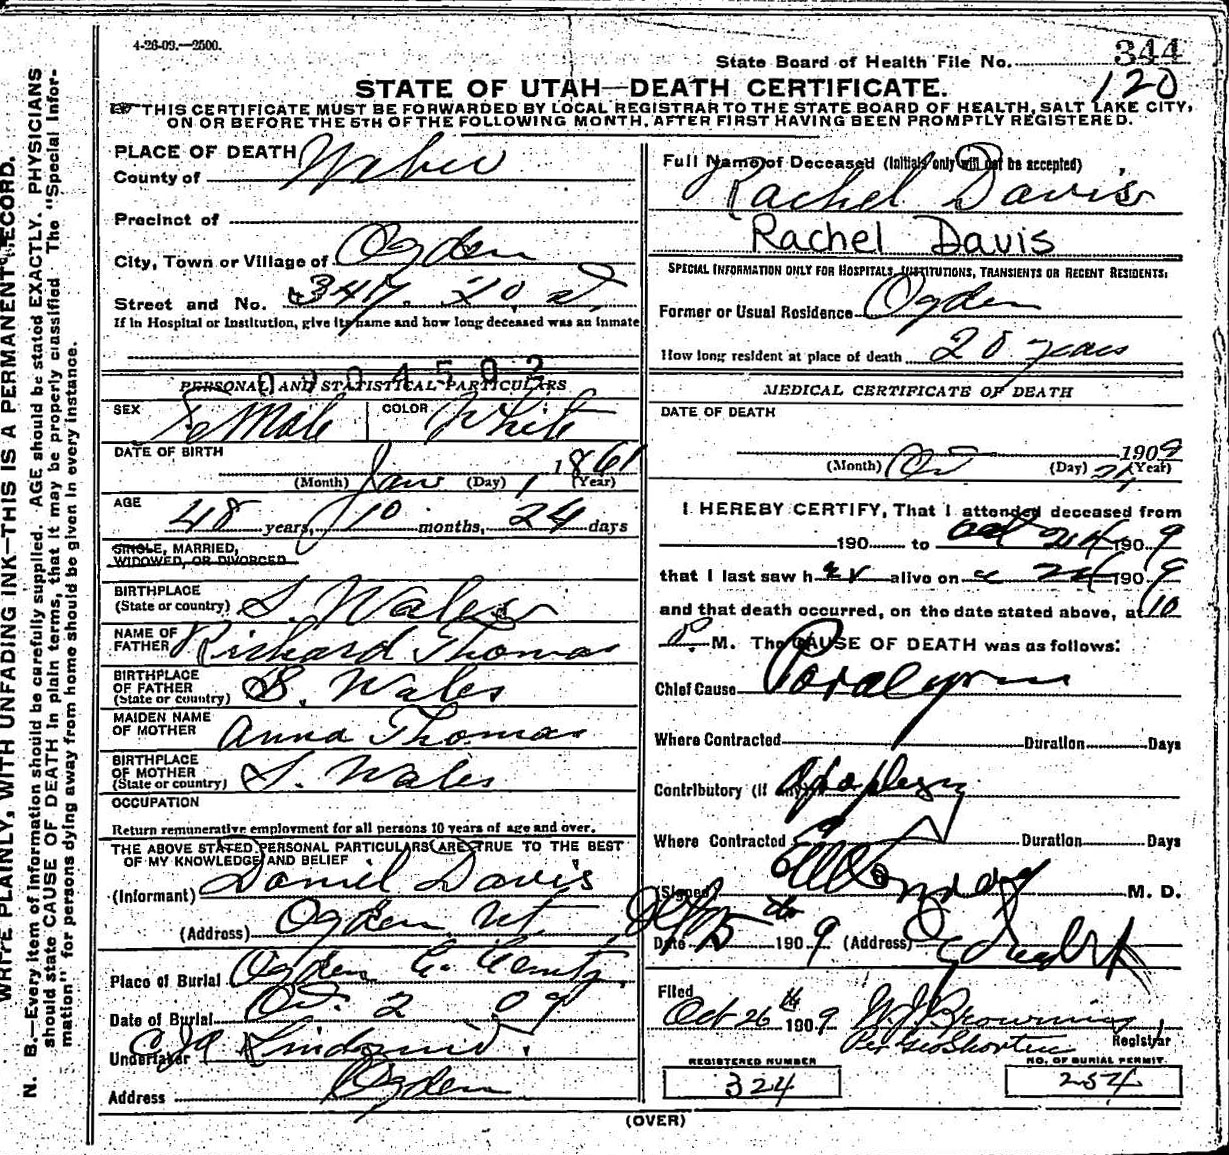 4-26-09.—2500.
344
State Board of Health File No.
120
STATE OF UTAH—DEATH CERTIFICATE.
THIS CERTIFICATE MUST BE FORWARDED BY LOCAL REGISTRAR TO THE STATE BOARD OF HEALTH, SALT LAKE CITY,
ON OR BEFORE THE 5TH OF THE FOLLOWING MONTH, AFTER FIRST HAVING BEEN PROMPTLY REGISTERED.
WRITE PLAINLY, WITH UNFADING INK—THIS IS A PERMANENT RECORD.
N. B.—Every item of information should be carefully supplied. AGE should be stated EXACTLY. PHYSICIANS
should state CAUSE OF DEATH in plain terms, that it may be properly classified. The "Special Infor-
mation" for persons dying away from home should be given in every instance.
PLACE OF DEATH
County of Weber
Precinct of
City, Town or Village of Ogden
Street and No. 347 20 St.
If in Hospital or Institution, give its name and how long deceased was an inmate
0904502
PERSONAL AND STATISTICAL PARTICULARS
SEX Female COLOR White
DATE OF BIRTH
Jan 1 1861
(Month) (Day) (Year)
AGE
48 years, 10 months, 24 days
SINGLE, MARRIED,
WIDOWED, OR DIVORCED
BIRTHPLACE
(State or country) S. Wales
NAME OF
FATHER Richard Thomas
BIRTHPLACE
OF FATHER
(State or country) S. Wales
MAIDEN NAME
OF MOTHER Anna Thomas
BIRTHPLACE
OF MOTHER
(State or country) S. Wales
OCCUPATION
Return remunerative employment for all persons 10 years of age and over.
THE ABOVE STATED PERSONAL PARTICULARS ARE TRUE TO THE BEST
OF MY KNOWLEDGE AND BELIEF
(Informant) Daniel Davis
(Address) Ogden Ut.
Place of Burial Ogden
Date of Burial Oct. 2 09
Undertaker Lindquist
Address Ogden
Full Name of Deceased (Initials only will not be accepted)
Rachel Davis
Rachel Davis
SPECIAL INFORMATION ONLY FOR HOSPITALS, INSTITUTIONS, TRANSIENTS OR RECENT RESIDENTS:
Former or Usual Residence Ogden
How long resident at place of death 20 years
MEDICAL CERTIFICATE OF DEATH
DATE OF DEATH
Oct 24 1909
(Month) (Day) (Year)
I HEREBY CERTIFY, That I attended deceased from
190 to Oct 24 1909
that I last saw her alive on 24 1909
and that death occurred, on the date stated above, at 10
P. M. The CAUSE OF DEATH was as follows:
Chief Cause Paralysis
Where Contracted Duration Days
Contributory (If any) Apoplexy
Where Contracted Duration Days
(Signed) M. D.
Date 25th 1909 (Address)
Filed
Oct 26th 1909 W J Browning
Registrar
Per Geo Shorten
REGISTERED NUMBER
324
NO. OF BURIAL PERMIT.
254
(OVER)